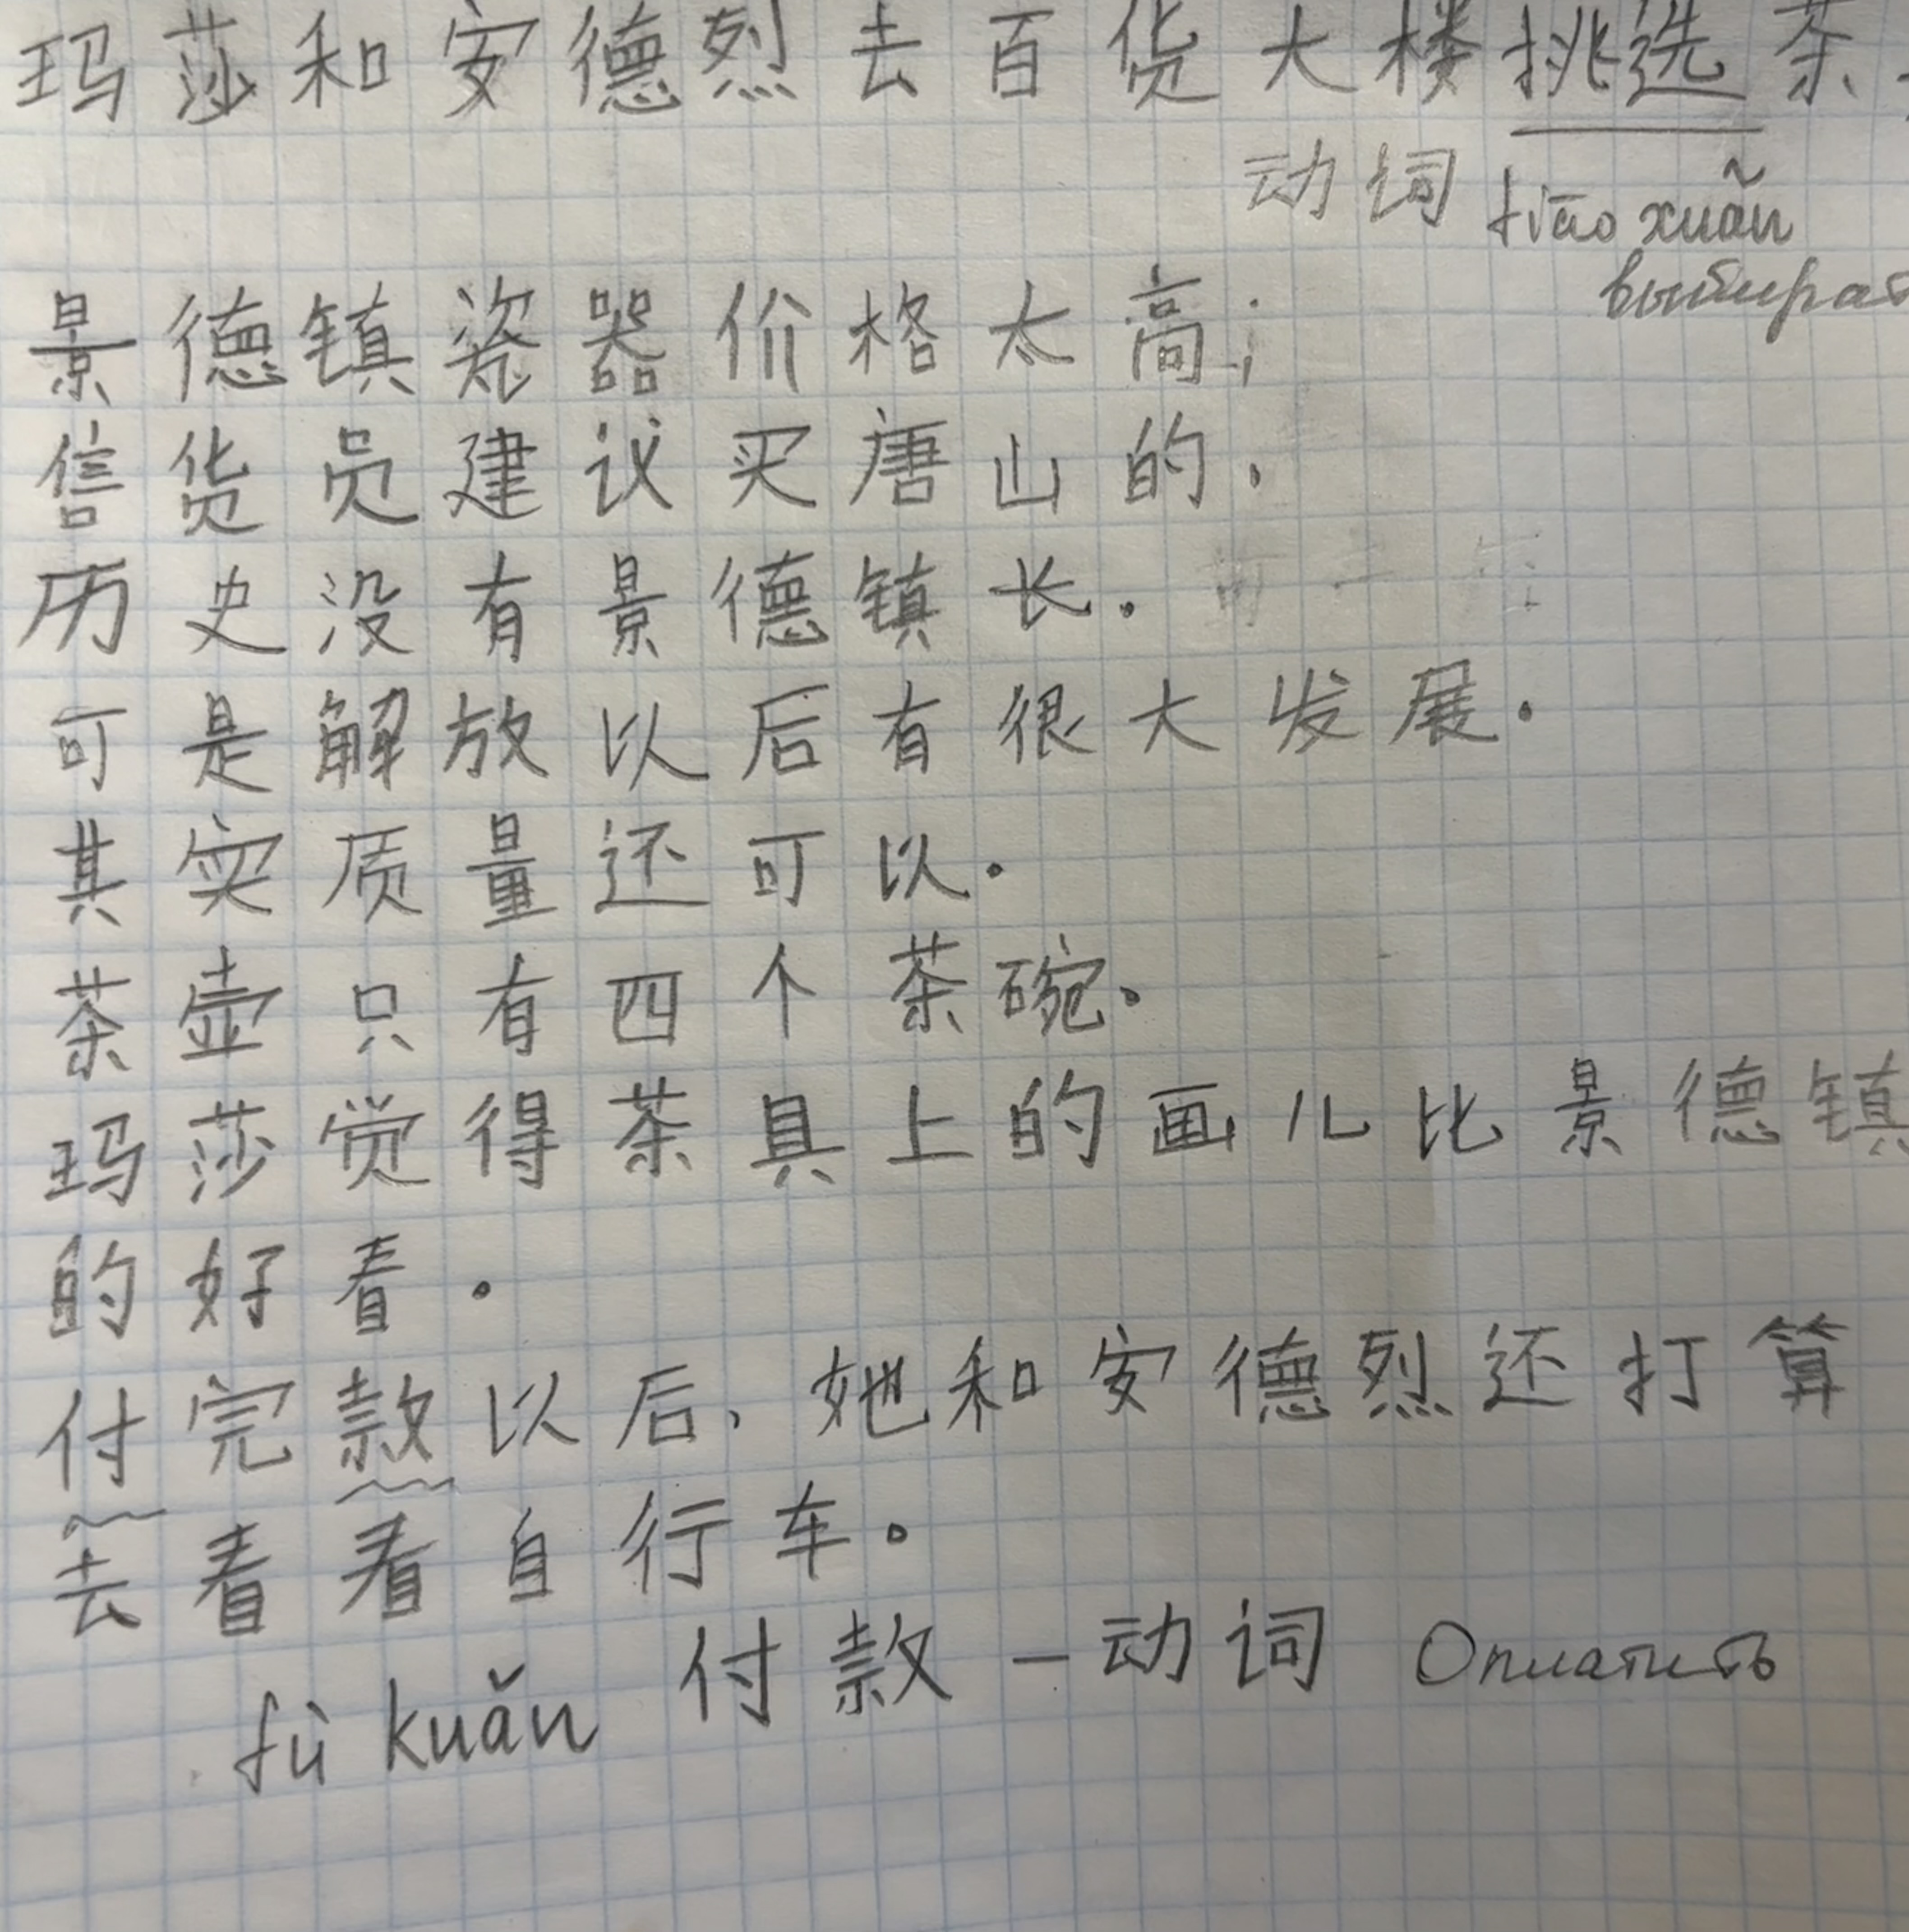 玛莎和安德烈去百货大楼挑选茶
动词 tiāo xuǎn
выбират
景德镇瓷器价格太高;
信货员建议买唐山的,
历史没有景德镇长.
可是解放以后有很大发展.
其实质量还可以.
茶壶只有四个茶碗.
玛莎觉得茶具上的画儿比景德镇
的好看.
付完款以后,她和安德烈还打算
去看看自行车。
付款 – 动词 Оплатить
fù kuǎn